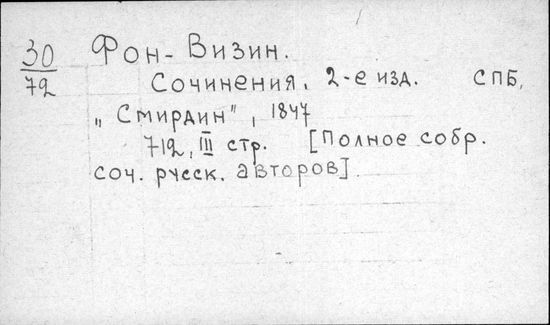 30
72
Фон-Визин.
Сочинения. 2-е изд. СПБ,
„Смирдин", 1847
712, III стр. [Полное собр.
соч. русск. авторов].